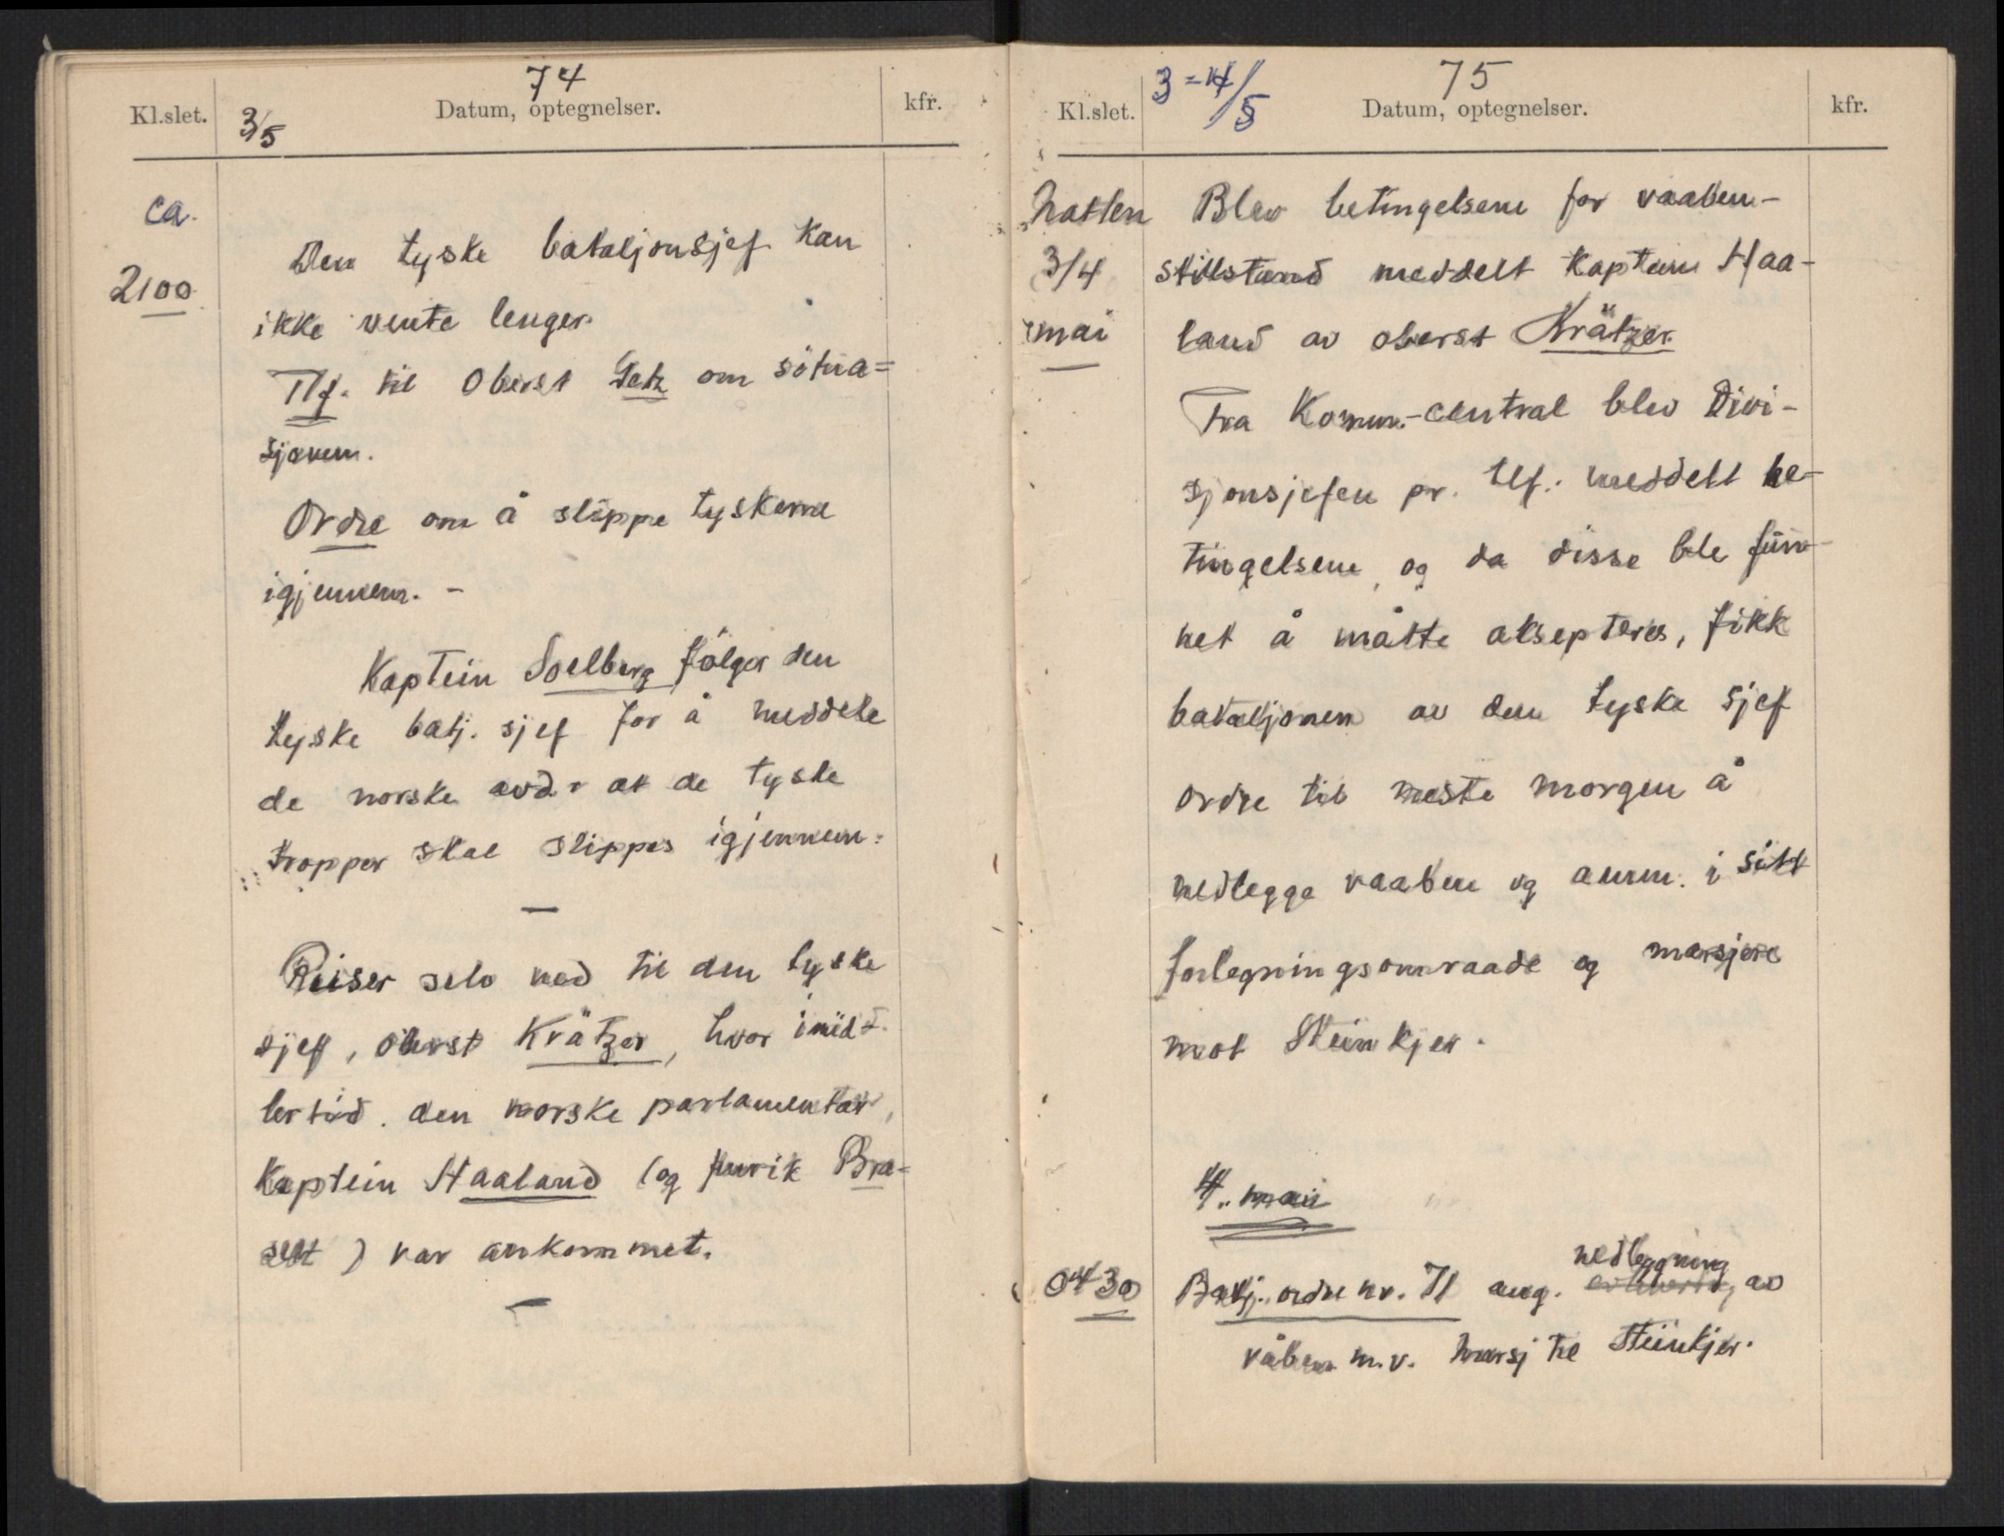 74
Kl.slet. 3/5 Datum, optegnelser. kfr.
ca. 2100
Den tyske bataljonsjef kan
ikke vente lenger.
Tlf. til Oberst Getz om situa=
sjonen.
Ordre om å slippe tyskerne
igjennem. -
Kaptein Soelberg følger den
tyske batj. sjef for å meddele
de norske avd. at de tyske
tropper skal slippes igjennem.
—
Reiser selv ned til den tyske
sjef, oberst Krätzer, hvor imid-
lertid den norske parlamentær,
Kaptein Haaland (og furik Bra=
set) var ankommet.
—
75
Kl.slet. 3-4/5 Datum, optegnelser. kfr.
Natten Blev betingelsene for vaaben-
3/4 stillstand meddelt Kaptein Haa-
mai land av oberst Krätzer.
Fra Komm.-central blev Divi-
sjonsjefen pr. tlf. meddelt be-
tingelsene, og da disse ble fun-
net å måtte aksepteres, fikk
bataljonen av den tyske sjef
ordre til neste morgen å
nedlegge vaaben og amm. i sitt
forlegningsomraade og marsjere
mot Steinkjer.
4. mai
nedlegning
0430 Batj. ordre nr. 71 ang. av
våben m.v. Marsj til Steinkjer.